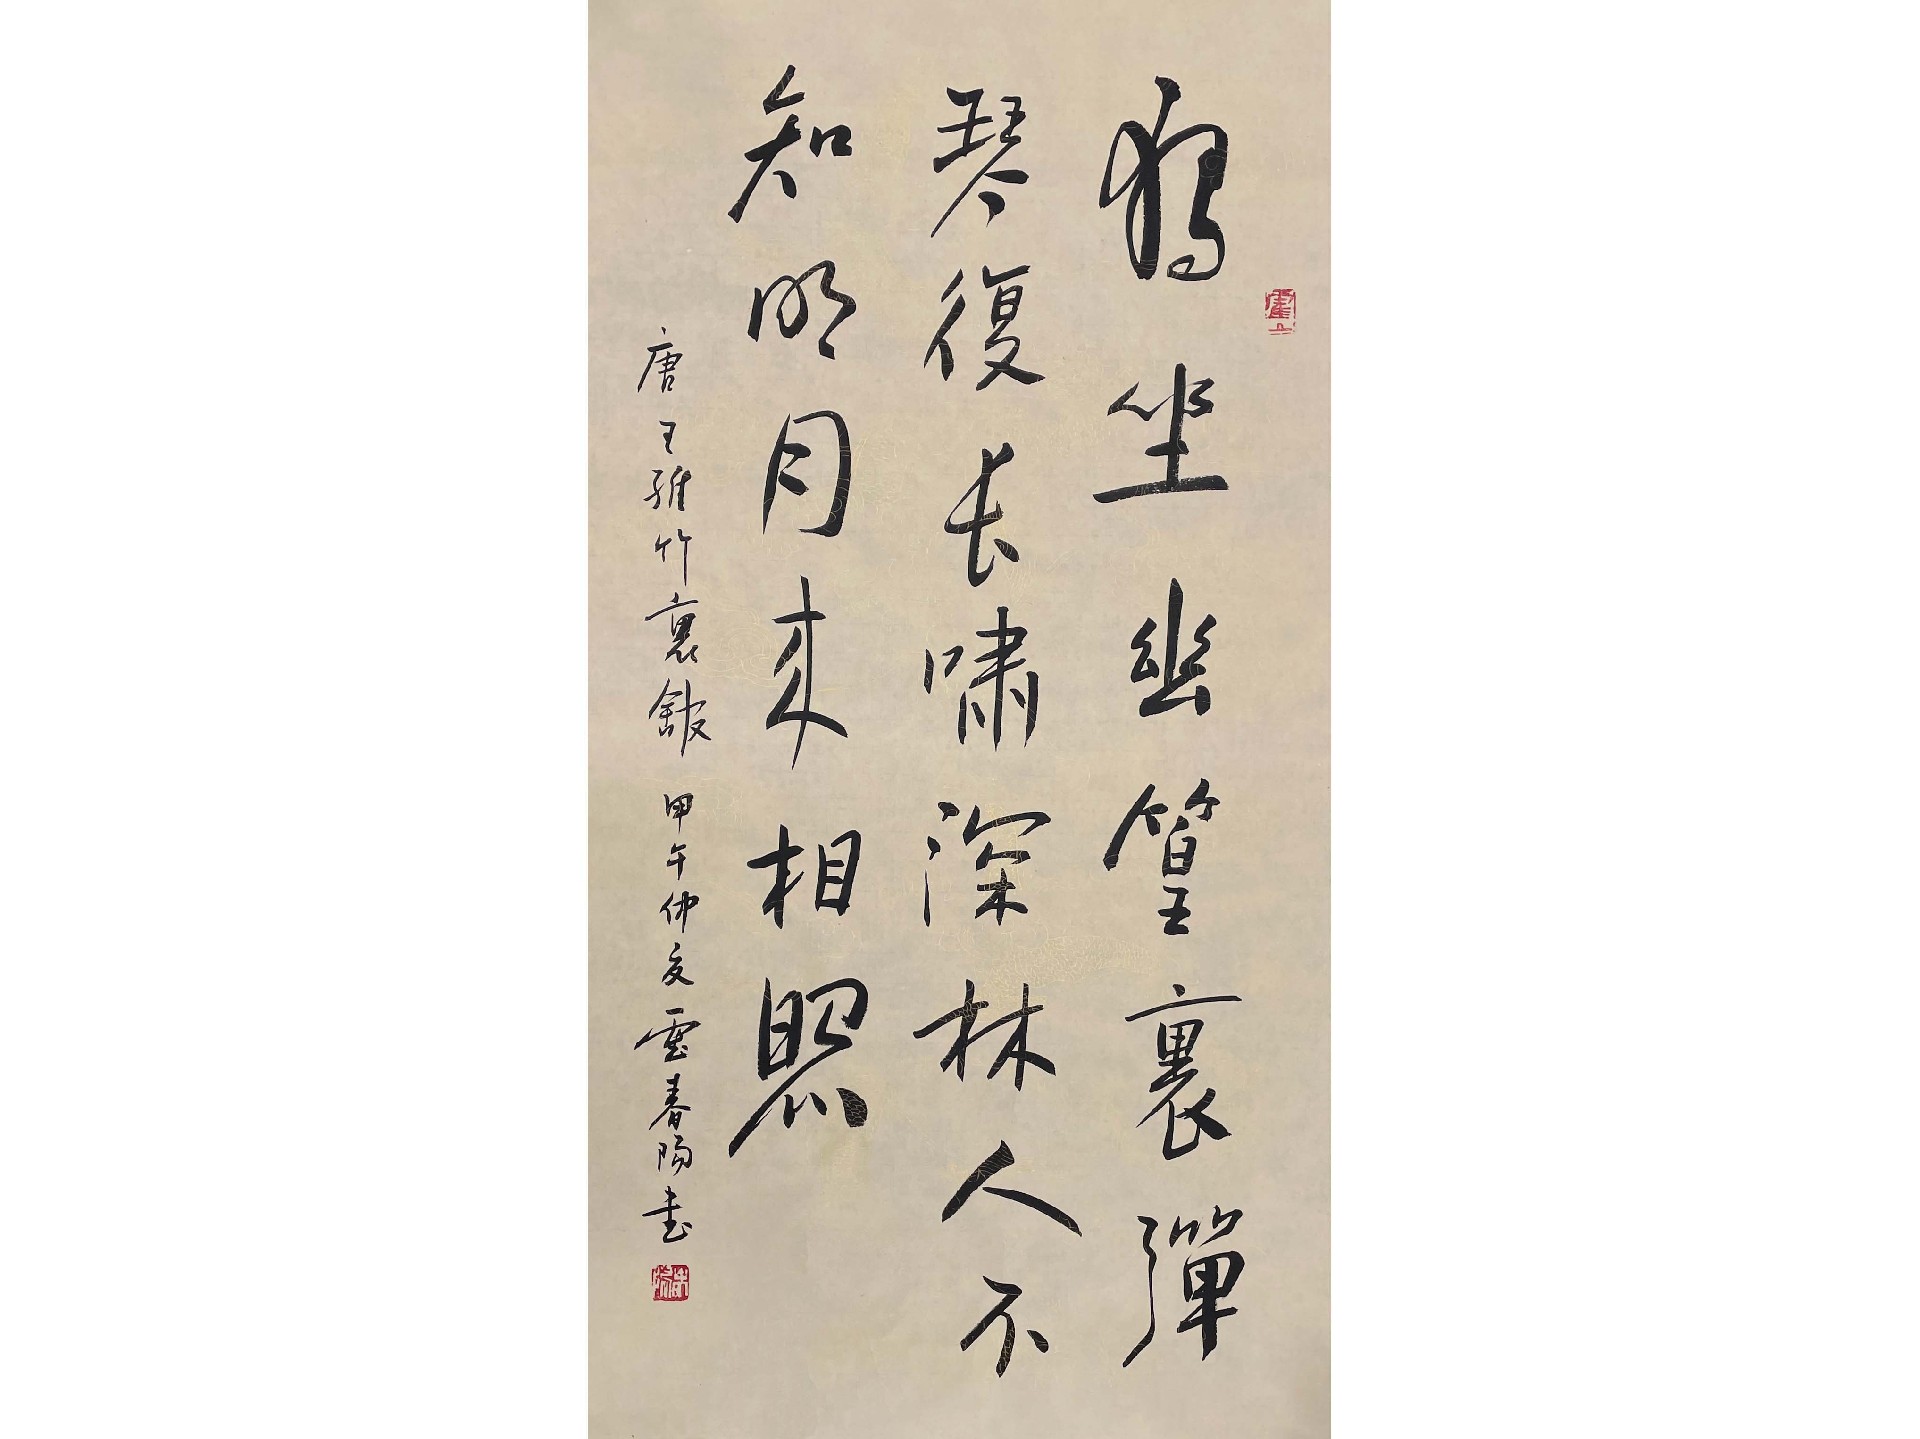 獨坐幽篁裏彈
琴復長嘯深林人不
知明月来相照
唐王維竹裏館 甲午仲夏 霍春陽書